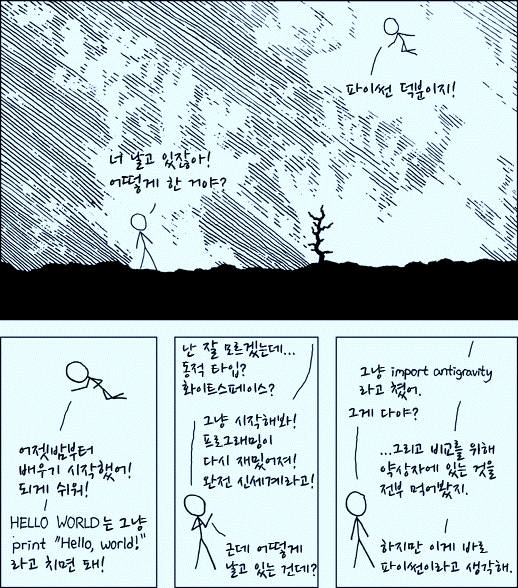 파이썬 덕분이지!
너 날고 있잖아!
어떻게 한 거야?
어젯밤부터
배우기 시작했어!
되게 쉬워!
HELLO WORLD는 그냥
print "Hello, world!"
라고 치면 돼!
난 잘 모르겠는데...
동적 타입?
화이트스페이스?
그냥 시작해봐!
프로그래밍이
다시 재밌어져!
완전 신세계라고!
근데 어떻게
날고 있는 건데?
그냥 import antigravity
라고 쳤어.
그게 다야?
...그리고 비교를 위해
약상자에 있는 것을
전부 먹어봤지.
하지만 이게 바로
파이썬이라고 생각해.